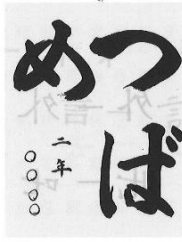 つば
め
二年
〇〇〇〇